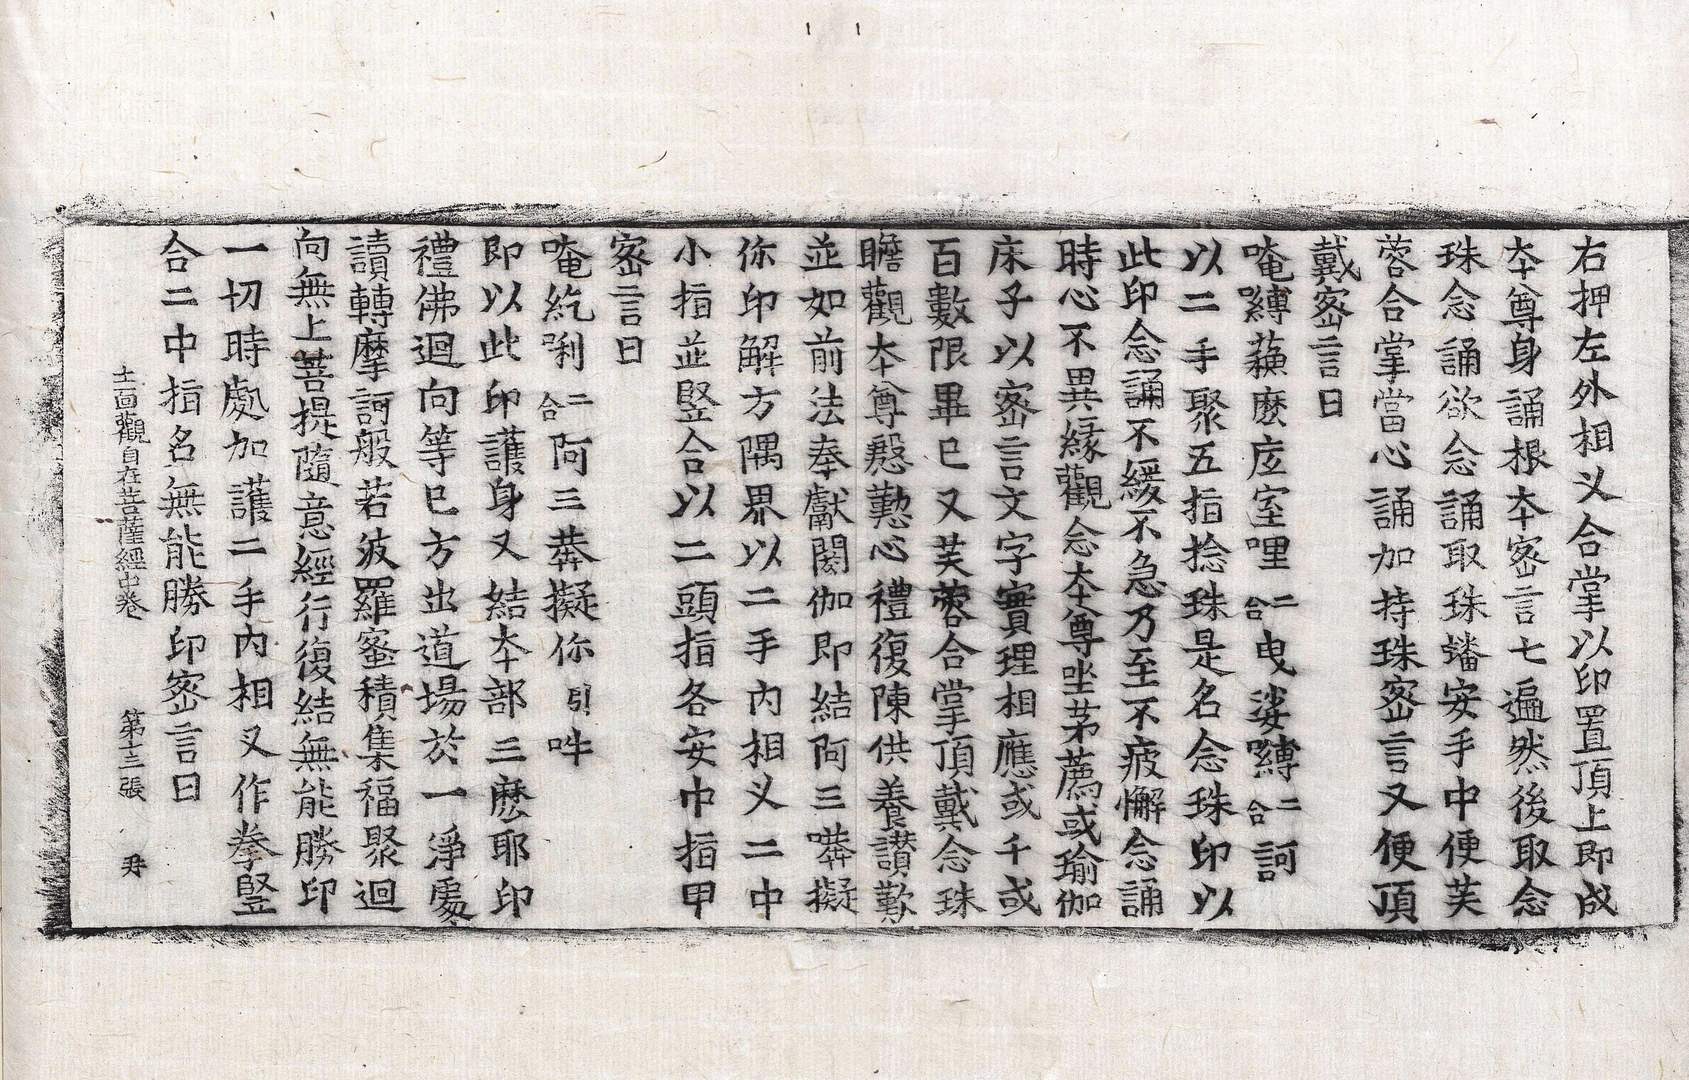 右押左外相叉合掌以印置頂上即成
夲尊身誦根夲宻言七遍然後取念
珠念誦欲念誦取珠蟠安手中便芙
蓉合掌當心誦加持珠宻言又便頂
戴宻言曰
唵嚩蘓麽庢室哩二合曳娑嚩二合訶
以二手聚五指捻珠是名念珠印以
此印念誦不緩不急乃至不疲懈念誦
時心不異縁觀念夲尊坐茅薦或瑜伽
床子以宻言文字實理相應或千或
百數限畢已又芙蓉合掌頂戴念珠
瞻觀夲尊慇懃心禮復陳供養讃歎
並如前法奉獻閼伽即結阿三㗶擬
你印解方隅界以二手内相叉二中
小指並竪合以二頭指各安中指甲
宻言曰
唵紇唎二合阿三莾擬你引吽
即以此印護身又結夲部三麽耶印
禮佛迴向等已方出道場於一淨處
讀轉摩訶般若波羅蜜積集福聚迴
向無上菩提隨意經行復結無能勝印
一切時處加護二手内相叉作拳竪
合二中指名無能勝印宻言曰
十一面觀自在菩薩經中卷 第十三張 丹